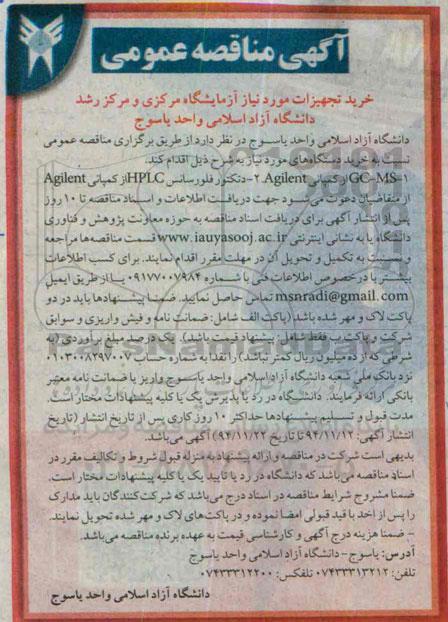 آگهی مناقصه عمومی
خرید تجهیزات مورد نیاز آزمایشگاه مرکزی و مرکز رشد
دانشگاه آزاد اسلامی واحد یاسوج
دانشگاه آزاد اسلامی واحد یاسوج در نظر دارد از طریق برگزاری مناقصه عمومی
نسبت به خرید دستگاه‌های مورد نیاز به شرح ذیل اقدام کند.
۱-GC-MS از کمپانی Agilent ۲-دتکتور فلورسانس HPLC از کمپانی Agilent
از متقاضیان دعوت می شود جهت دریافت اطلاعات و اسناد مناقصه تا ۱۰ روز
پس از انتشار آگهی برای دریافت اسناد مناقصه به حوزه معاونت پژوهش و فناوری
دانشگاه یا به نشانی اینترنتی www.iauyasooj.ac.ir قسمت مناقصه‌ها مراجعه
و نسبت به تکمیل و تحویل آن در مهلت مقرر اقدام نمایند. برای کسب اطلاعات
بیشتر یا در خصوص اطلاعات فنی با شماره ۰۹۱۷۷۰۰۷۹۸۴ یا از طریق ایمیل
msnradi@gmail.com تماس حاصل نمایید. ضمنا پیشنهادها باید در دو
پاکت لاک و مهر شده باشد (پاکت الف شامل: ضمانت نامه و فیش واریزی و سوابق
شرکت و پاکت ب فقط شامل: پیشنهاد قیمت باشد). یک درصد مبلغ برآوردی (به
شرطی که از ده میلیون ریال کمتر نباشد) را نقدا به شماره حساب ۰۱۰۳۰۰۸۲۹۷۰۰۷
نزد بانک ملی شعبه دانشگاه آزاد اسلامی واحد یاسوج واریز یا ضمانت نامه معتبر
بانکی ارائه فرمایند. دانشگاه در رد یا پذیرش یک یا کلیه پیشنهادات مختار است.
مدت قبول و تسلیم پیشنهادها حداکثر ۱۰ روز کاری پس از تاریخ انتشار (تاریخ
انتشار آگهی: ۹۴/۱۱/۱۲ تا تاریخ ۹۴/۱۱/۲۲) آگهی می‌باشد.
بدیهی است شرکت در مناقصه و ارائه پیشنهاد به منزله قبول شروط و تکالیف مقرر در
اسناد مناقصه می‌باشد که دانشگاه در رد یا تایید یک یا کلیه پیشنهادات مختار است.
ضمنا مشروح شرایط مناقصه در اسناد درج می‌باشد که شرکت کنندگان باید مدارک
را پس از اخذ با قید قبولی امضا نموده و در پاکت‌های لاک و مهر شده تحویل نمایند.
- ضمنا هزینه درج آگهی و کارشناسی قیمت به عهده برنده مناقصه می‌باشد.
آدرس: یاسوج - دانشگاه آزاد اسلامی واحد یاسوج
تلفن: ۰۷۴۳۳۳۱۳۲۱۲ تلفکس: ۰۷۴۳۳۳۱۲۲۰۰
دانشگاه آزاد اسلامی واحد یاسوج